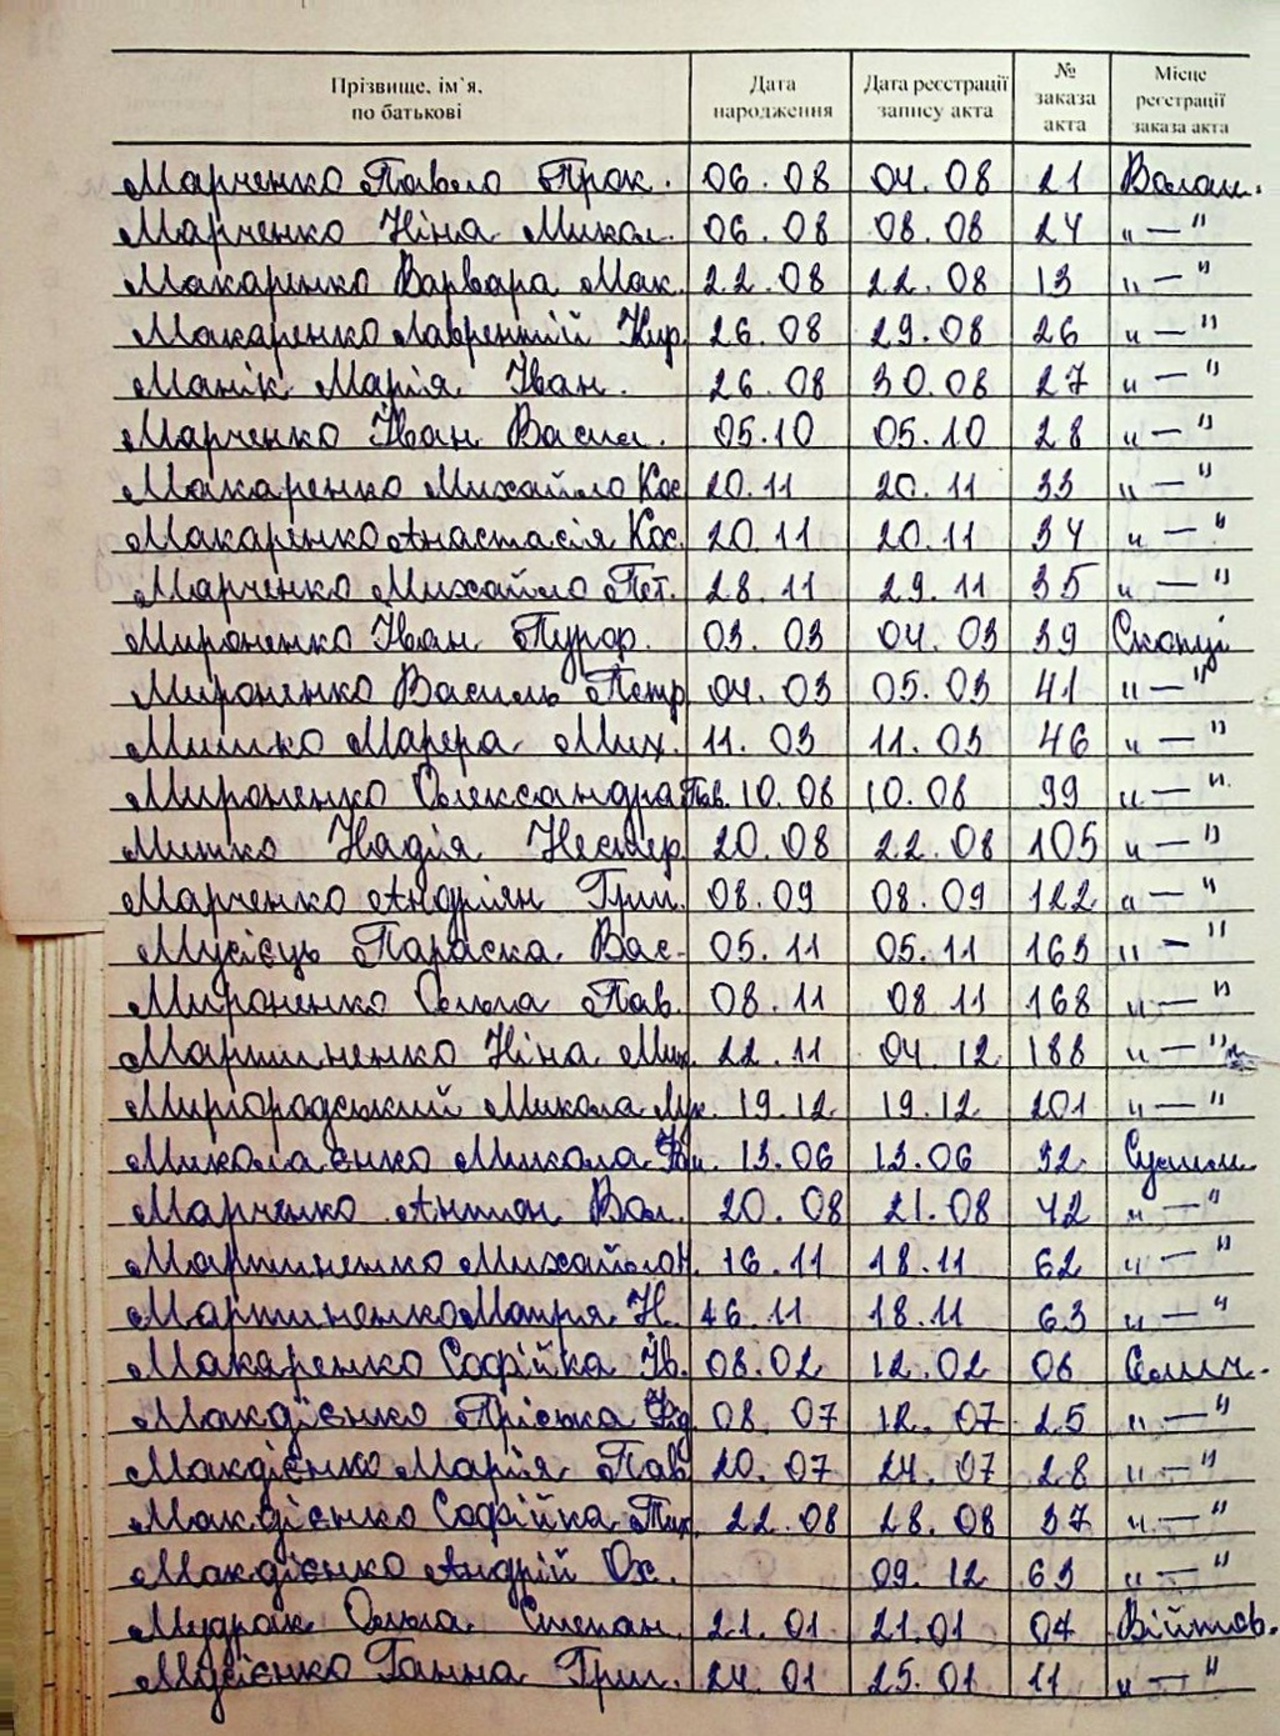 Прізвище, ім`я, по батькові Дата народження Дата реєстрації запису акта № заказа акта Місце реєстрації заказа акта
Марченко Павло Прок. 06.08 04.08 21 Волош.
Марченко Ніна Микол. 06.08 08.08 24 "—"
Макаренко Варвара Мак. 22.08 22.08 13 "—"
Макаренко Лаврентій Кир. 26.08 29.08 26 "—"
Манік Марія Іван. 26.08 30.08 27 "—"
Марченко Іван Васил. 05.10 05.10 28 "—"
Макаренко Михайло Кос. 20.11 20.11 33 "—"
Макаренко Анастасія Кос. 20.11 20.11 34 "—"
Марченко Михайло Пет. 28.11 29.11 35 "—"
Мироненко Іван 03.03 04.03 39 Скопці
Мироненко Василь Петр. 04.03 05.03 41 "—"
Мишко Мих. 11.03 11.03 46 "—"
Мироненко Олександра Пав. 10.08 10.08 99 "—"
Мишко Надія Нестер. 20.08 22.08 105 "—"
Марченко Андріян Григ. 08.09 08.09 122 "—"
Мусієць Параска Вас. 05.11 05.11 163 "—"
Мироненко Ольга Пав. 08.11 08.11 168 "—"
Мартиненко Ніна Мих. 22.11 04.12 188 "—"
Миргородський Микола Лук. 19.12 19.12 201 "—"
Миколаєнко Микола 13.06 13.06 32 Сулим.
Марченко Антон Вол. 20.08 21.08 42 "—"
Мартиненко Михайло Н. 16.11 18.11 62 "—"
Мартиненко Мотря Н. 16.11 18.11 63 "—"
Макаренко Софійка Ів. 08.02 12.02 06 Селич.
Макдієнко Пріська 08.07 12.07 25 "—"
Макдієнко Марія Пав. 20.07 24.07 28 "—"
Макдієнко Софійка Тих. 22.08 28.08 37 "—"
Макдієнко Андрій Ох. 09.12 63 "—"
Мудрак Ольга Степан. 21.01 21.01 04 Війтов.
Мусієнко Ганна Григ. 24.01 25.01 11 "—"